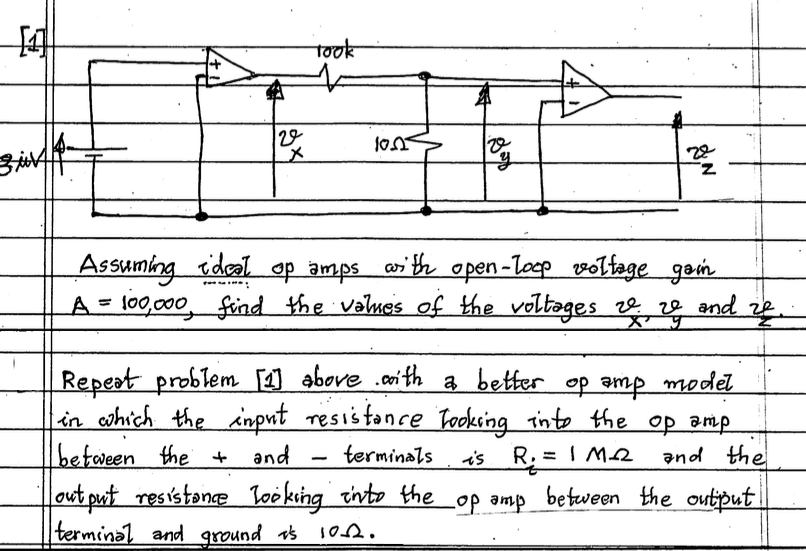 [1]
100k
+
-
+
-
3μV
v x
10Ω
v y
v z
Assuming ideal op amps with open-loop voltage gain
A = 100,000, find the values of the voltages v x, v y and v z.
Repeat problem [1] above with a better op amp model
in which the input resistance looking into the op amp
between the + and - terminals is R i = 1 MΩ and the
output resistance looking into the op amp between the output
terminal and ground is 10Ω.